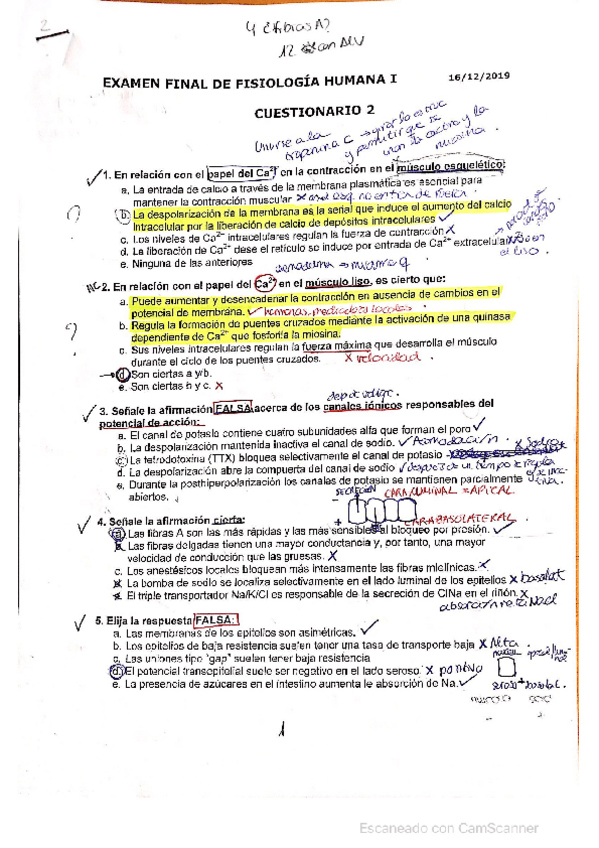 2
EXAMEN FINAL DE FISIOLOGÍA HUMANA I 16/12/2019
CUESTIONARIO 2
Unirse a la
troponina C →
y permitir que se
unan la actina y la
miosina.
1. En relación con el papel del Ca2+ en la contracción en el músculo esquelético:
a. La entrada de calcio a través de la membrana plasmática es esencial para
mantener la contracción muscular x
b. La despolarización de la membrana es la señal que induce el aumento del calcio
intracelular por la liberación de calcio de depósitos intracelulares ✓
c. Los niveles de Ca2+ intracelulares regulan la fuerza de contracción X
d. La liberación de Ca2+ dese el retículo se induce por entrada de Ca2+ extracelular X
el liso.
e. Ninguna de las anteriores
?
2. En relación con el papel del Ca2+ en el músculo liso, es cierto que:
a. Puede aumentar y desencadenar la contracción en ausencia de cambios en el
potencial de membrana. ✓ hormonas, mediadores locales.
b. Regula la formación de puentes cruzados mediante la activación de una quinasa
dependiente de Ca2+ que fosforila la miosina.
?
c. Sus niveles intracelulares regulan la fuerza máxima que desarrolla el músculo
durante el ciclo de los puentes cruzados. X velocidad.
d. Son ciertas a y b.
e. Son ciertas b y c. X
3. Señale la afirmación FALSA acerca de los canales iónicos responsables del
potencial de acción:
a. El canal de potasio contiene cuatro subunidades alfa que forman el poro ✓
b. La despolarización mantenida inactiva el canal de sodio. ✓ Acomodación.
c. La tetrodotoxina (TTX) bloquea selectivamente el canal de potasio x Sodio
d. La despolarización abre la compuerta del canal de sodio ✓ después de un tiempo
e. Durante la posthiperpolarización los canales de potasio se mantienen parcialmente
abiertos. ✓
SECRECIÓN CARA LUMINAL = APICAL
CARA BASOLATERAL
4. Señale la afirmación cierta:
a. Las fibras A son las más rápidas y las más sensibles al bloqueo por presión. ✓
b. Las fibras delgadas tienen una mayor conductancia y, por tanto, una mayor
velocidad de conducción que las gruesas. X
c. Los anestésicos locales bloquean más intensamente las fibras mielínicas. X
d. La bomba de sodio se localiza selectivamente en el lado luminal de los epitelios X basolat
e. El triple transportador Na/K/Cl es responsable de la secreción de ClNa en el riñón. X
5. Elija la respuesta FALSA:
a. Las membranas de los epitelios son asimétricas. ✓
b. Los epitelios de baja resistencia suelen tener una tasa de transporte baja X Alta.
c. Las uniones tipo "gap" suelen tener baja resistencia
d. El potencial transepitelial suele ser negativo en el lado seroso. X positivo
e. La presencia de azúcares en el intestino aumenta le absorción de Na. ✓
1
Escaneado con CamScanner